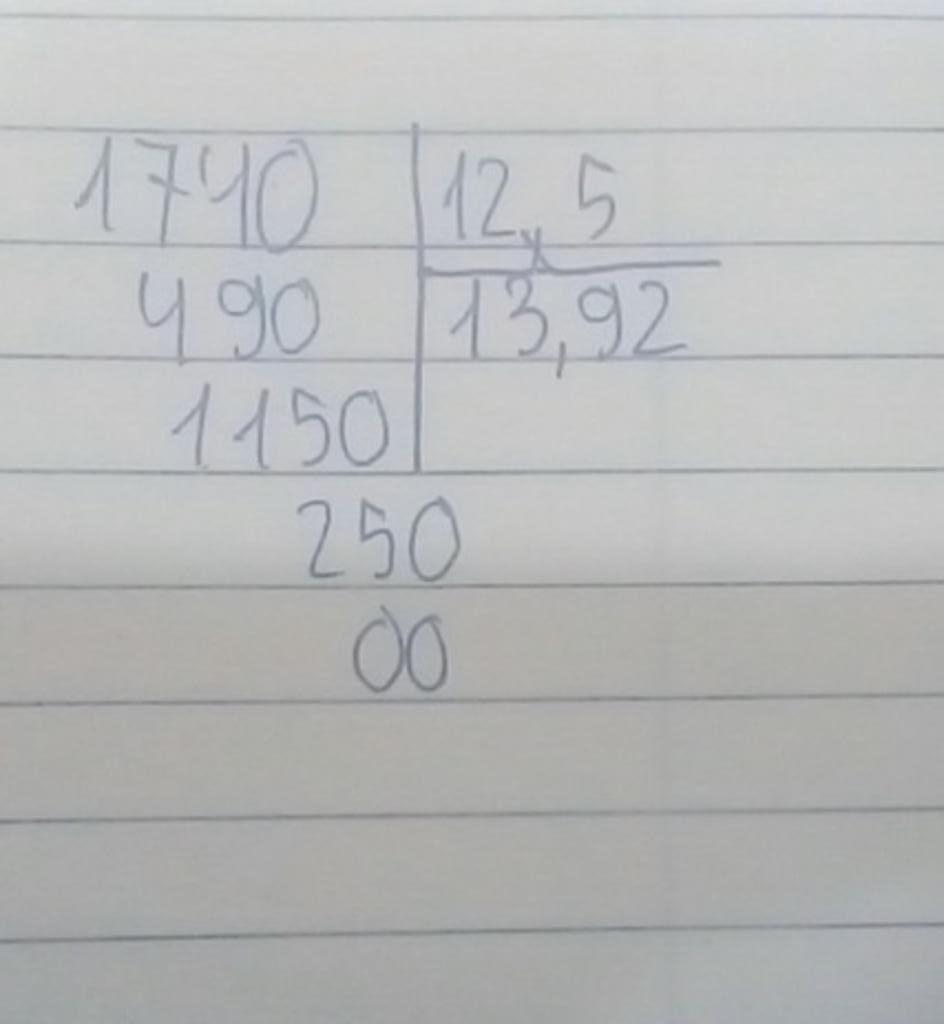 1740 12,5
490 13,92
1150
250
00